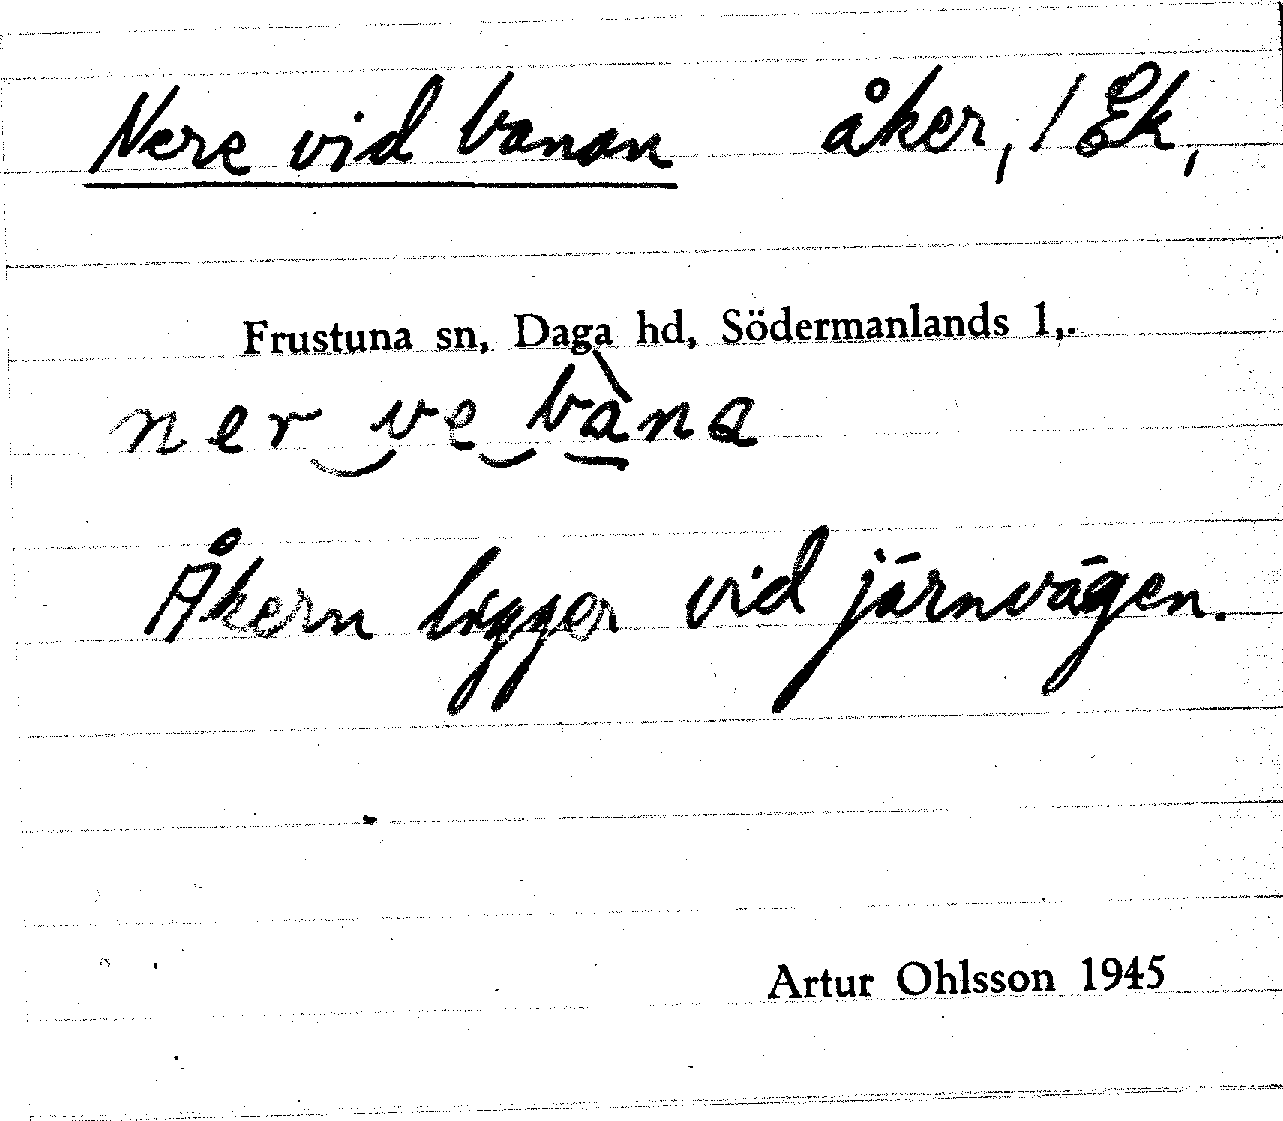 Nere vid banan åker, / Ek,
Frustuna sn, Daga hd, Södermanlands l,.
ner ve bàna
Åkern ligger vid järnvägen.
Artur Ohlsson 1945